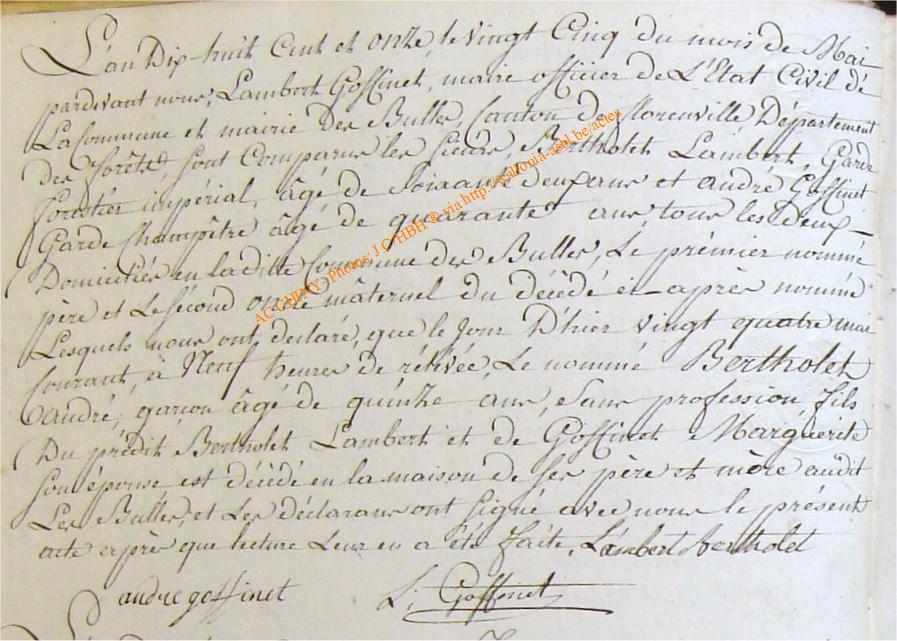 L'an Dix-huit Cent et onze, le vingt Cinq du mois de Mai
pardevant nous, Lambert Goffinet, maire officier de L'Etat Civil dé
La Commune et mairie des Bulles, Canton de florenville Département
des forêts, sont Comparus les sieurs, Bertholet Lambert, Garde
forestier impérial, âgé de soixante deux ans et andré Goffinet
Garde Champêtre âgé de quarante ans, tous les deux
Domiciliés en la ditte Commune des Bulles, Le prémier nommé
père et Le second oncle mâternel du décédé ci-après nommé
Lesquels nous ont declaré, que le Jour D'hier vingt quatre mai
Courant, à Neuf heures de rélévée, Le nommé Bertholet
andré, garcon âgé de quinze ans, Sans profession fils
Du prédit Bertholet Lambert et de Goffinet Marguerite
son épouse est décédé en la maison de ses père et mère audit
Les Bulles, et Les déclarans ont signé avec nous le présent
acte après que lecture Leur en a été faite, Lambert bertholet
andre goffinet L: Goffinet
ACGHFTY - Photos J.C HBH © via http://wallonia-asbl.be/actes